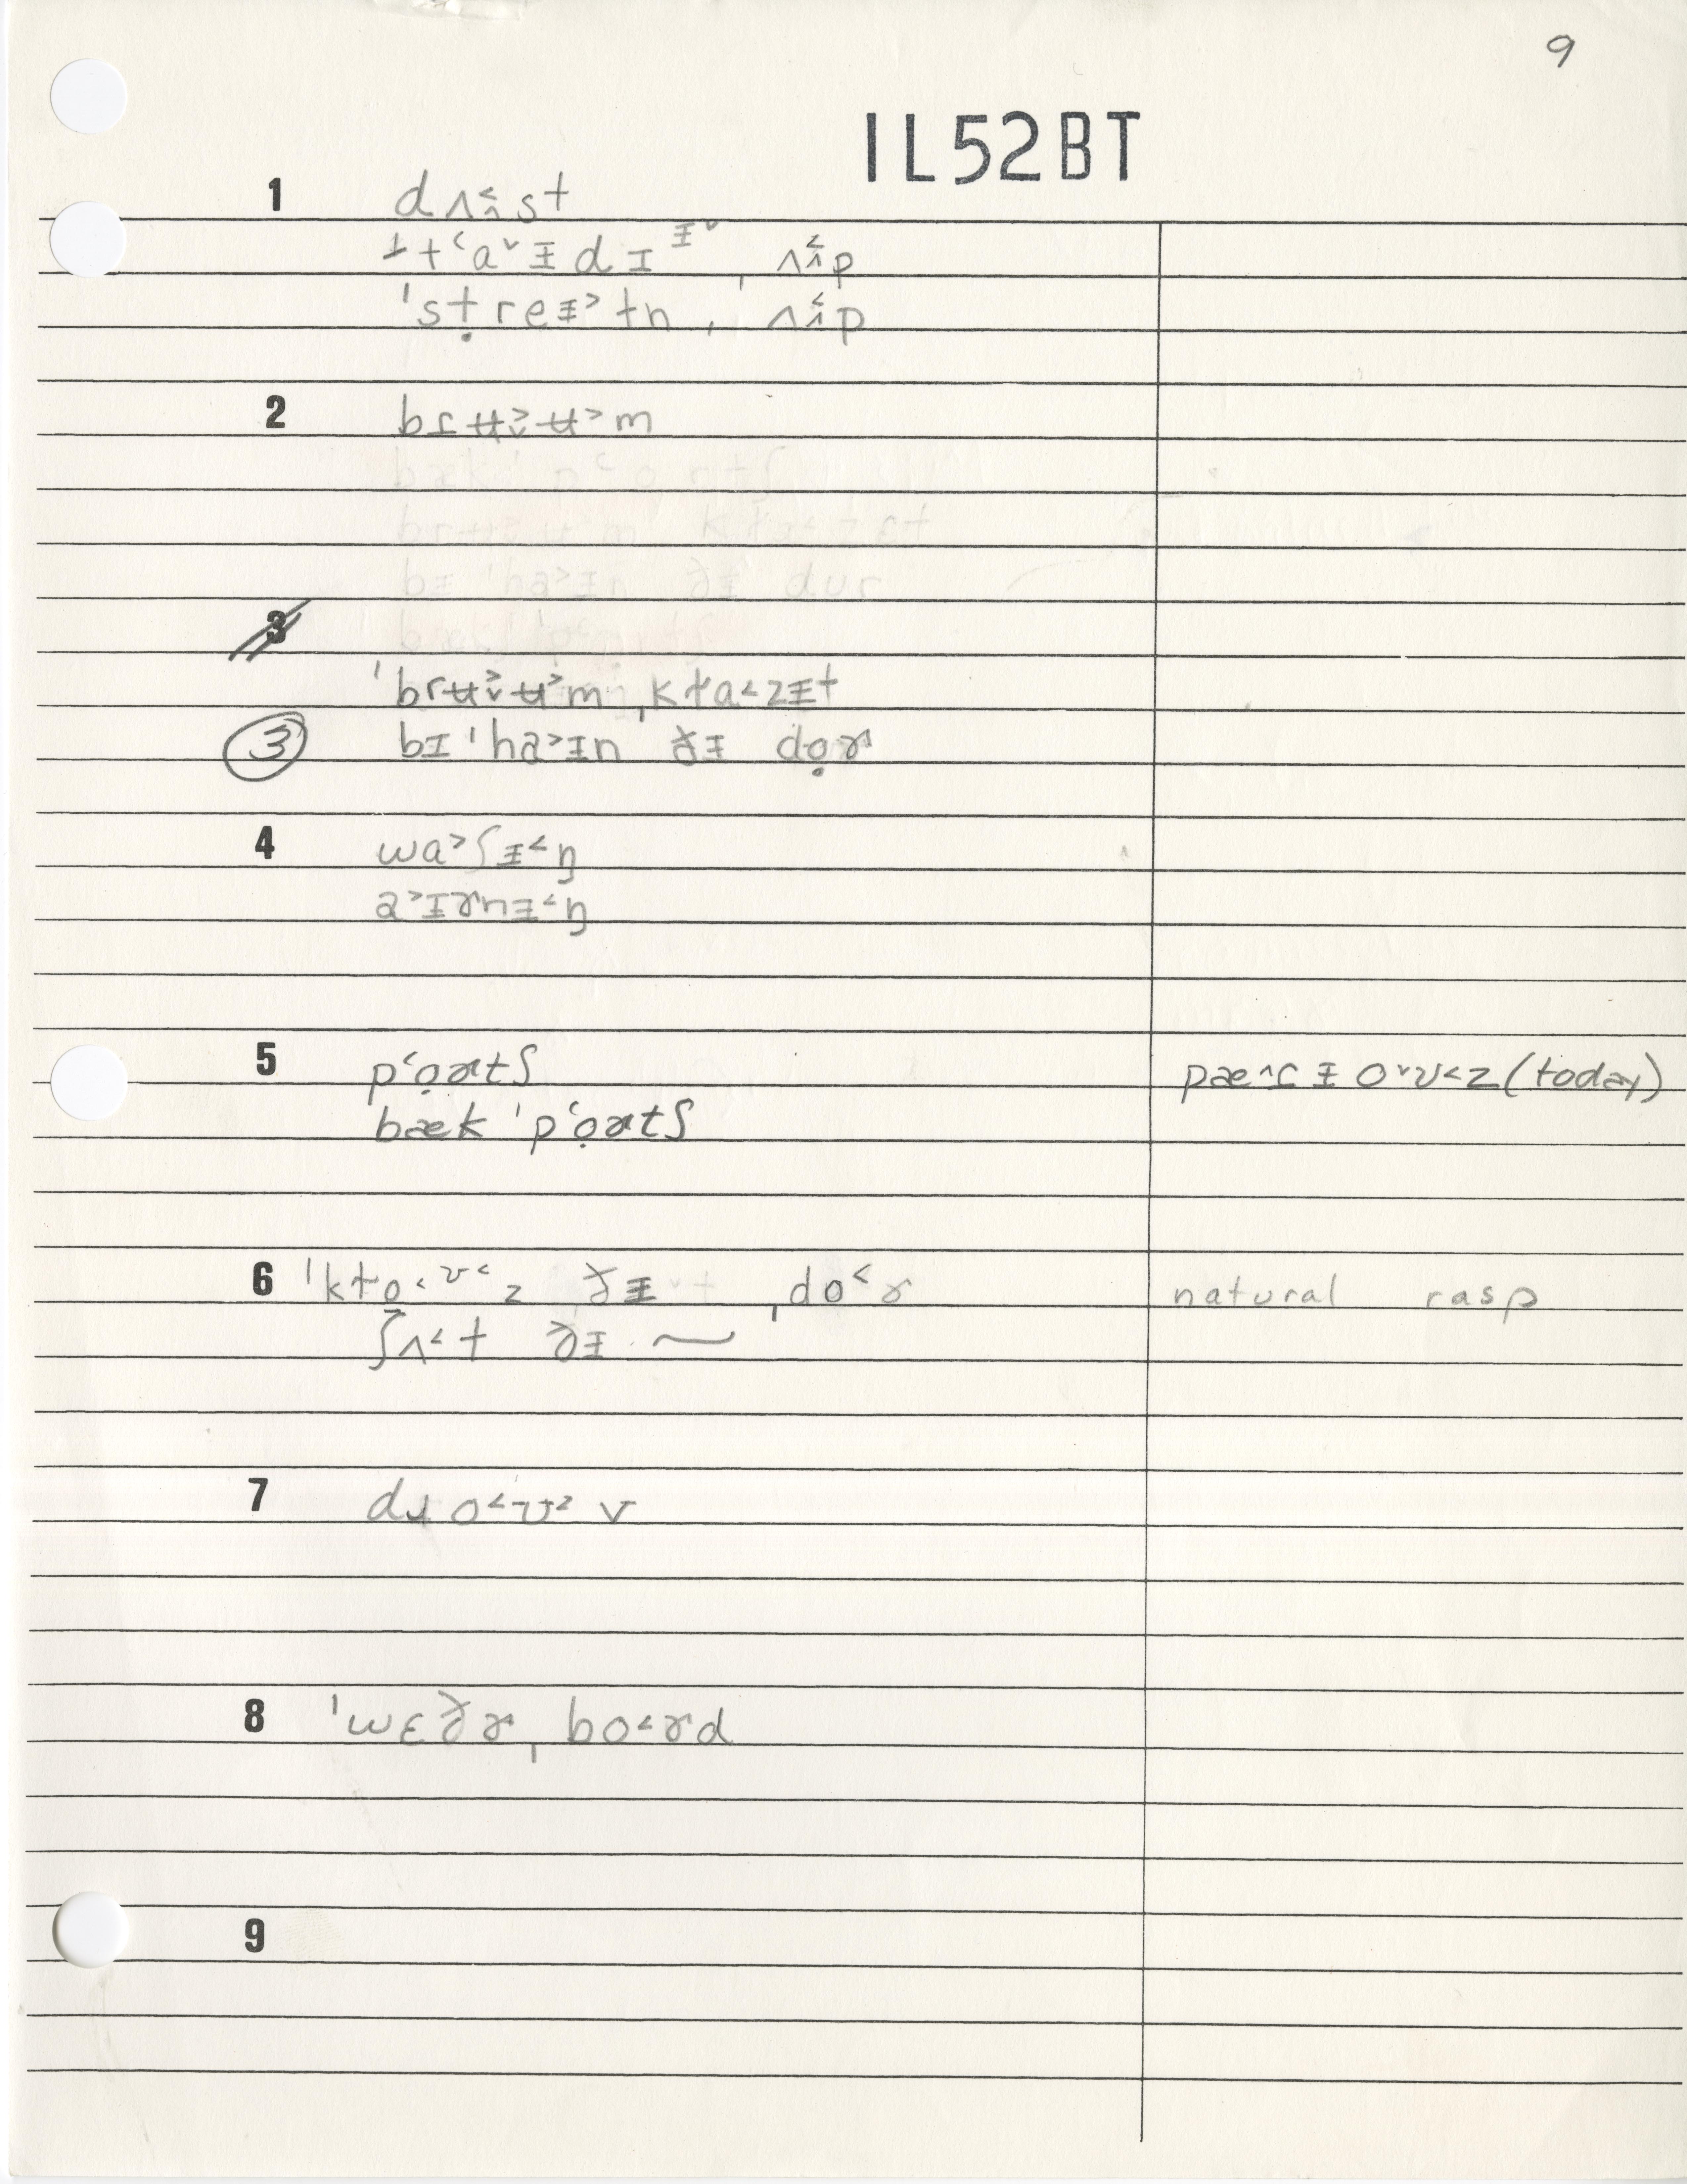 9
IL52BT
1 dʌ˂̭st
tʻa˅ɪ̵dɪᶧ˅ ˌʌ˂̭p
ˈsṭreɪ̵˃tn ˌʌ˂̭p
2 brʉ˃̬ʉ˃m
3
ˈbrʉ˃̬ʉ˃m ˌkɫa˂zɪ̵t
3 bɪ ˈha˃ɪn ðɪ̵ dọɚ
4 wa˃ʃɪ̵˂ŋ
a˃ɪɚnɪ̵˂ŋ
5 pʻọɚtʃ pæ˄ɾɪ̵o˅ʊ˂z (today)
bæk ˈpʻọɚtʃ
6 ˈkɫo̞˂ʊ˂z ðɪ̵ ˌdo˂ɚ natural rasp
ʃʌ˂t ðɪ̵ ~
7 dɹo˂ʊ˃v
8 ˈwɛðɚˌbo˂ɚd
9